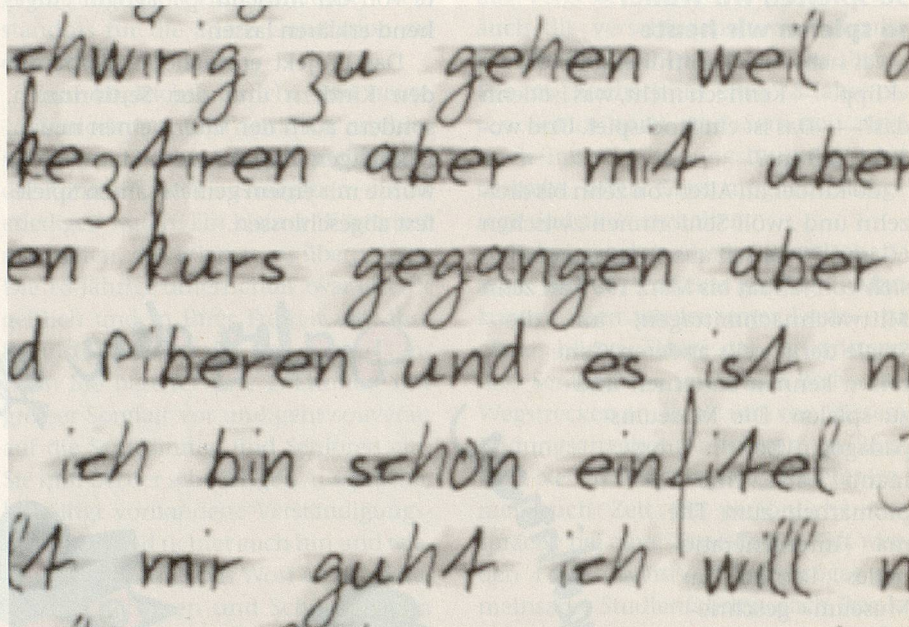 chwirig zu gehen weil
aber mit uber
en kurs gegangen aber
d Piberen und es ist n
ich bin schon ein
mir guht ich will n